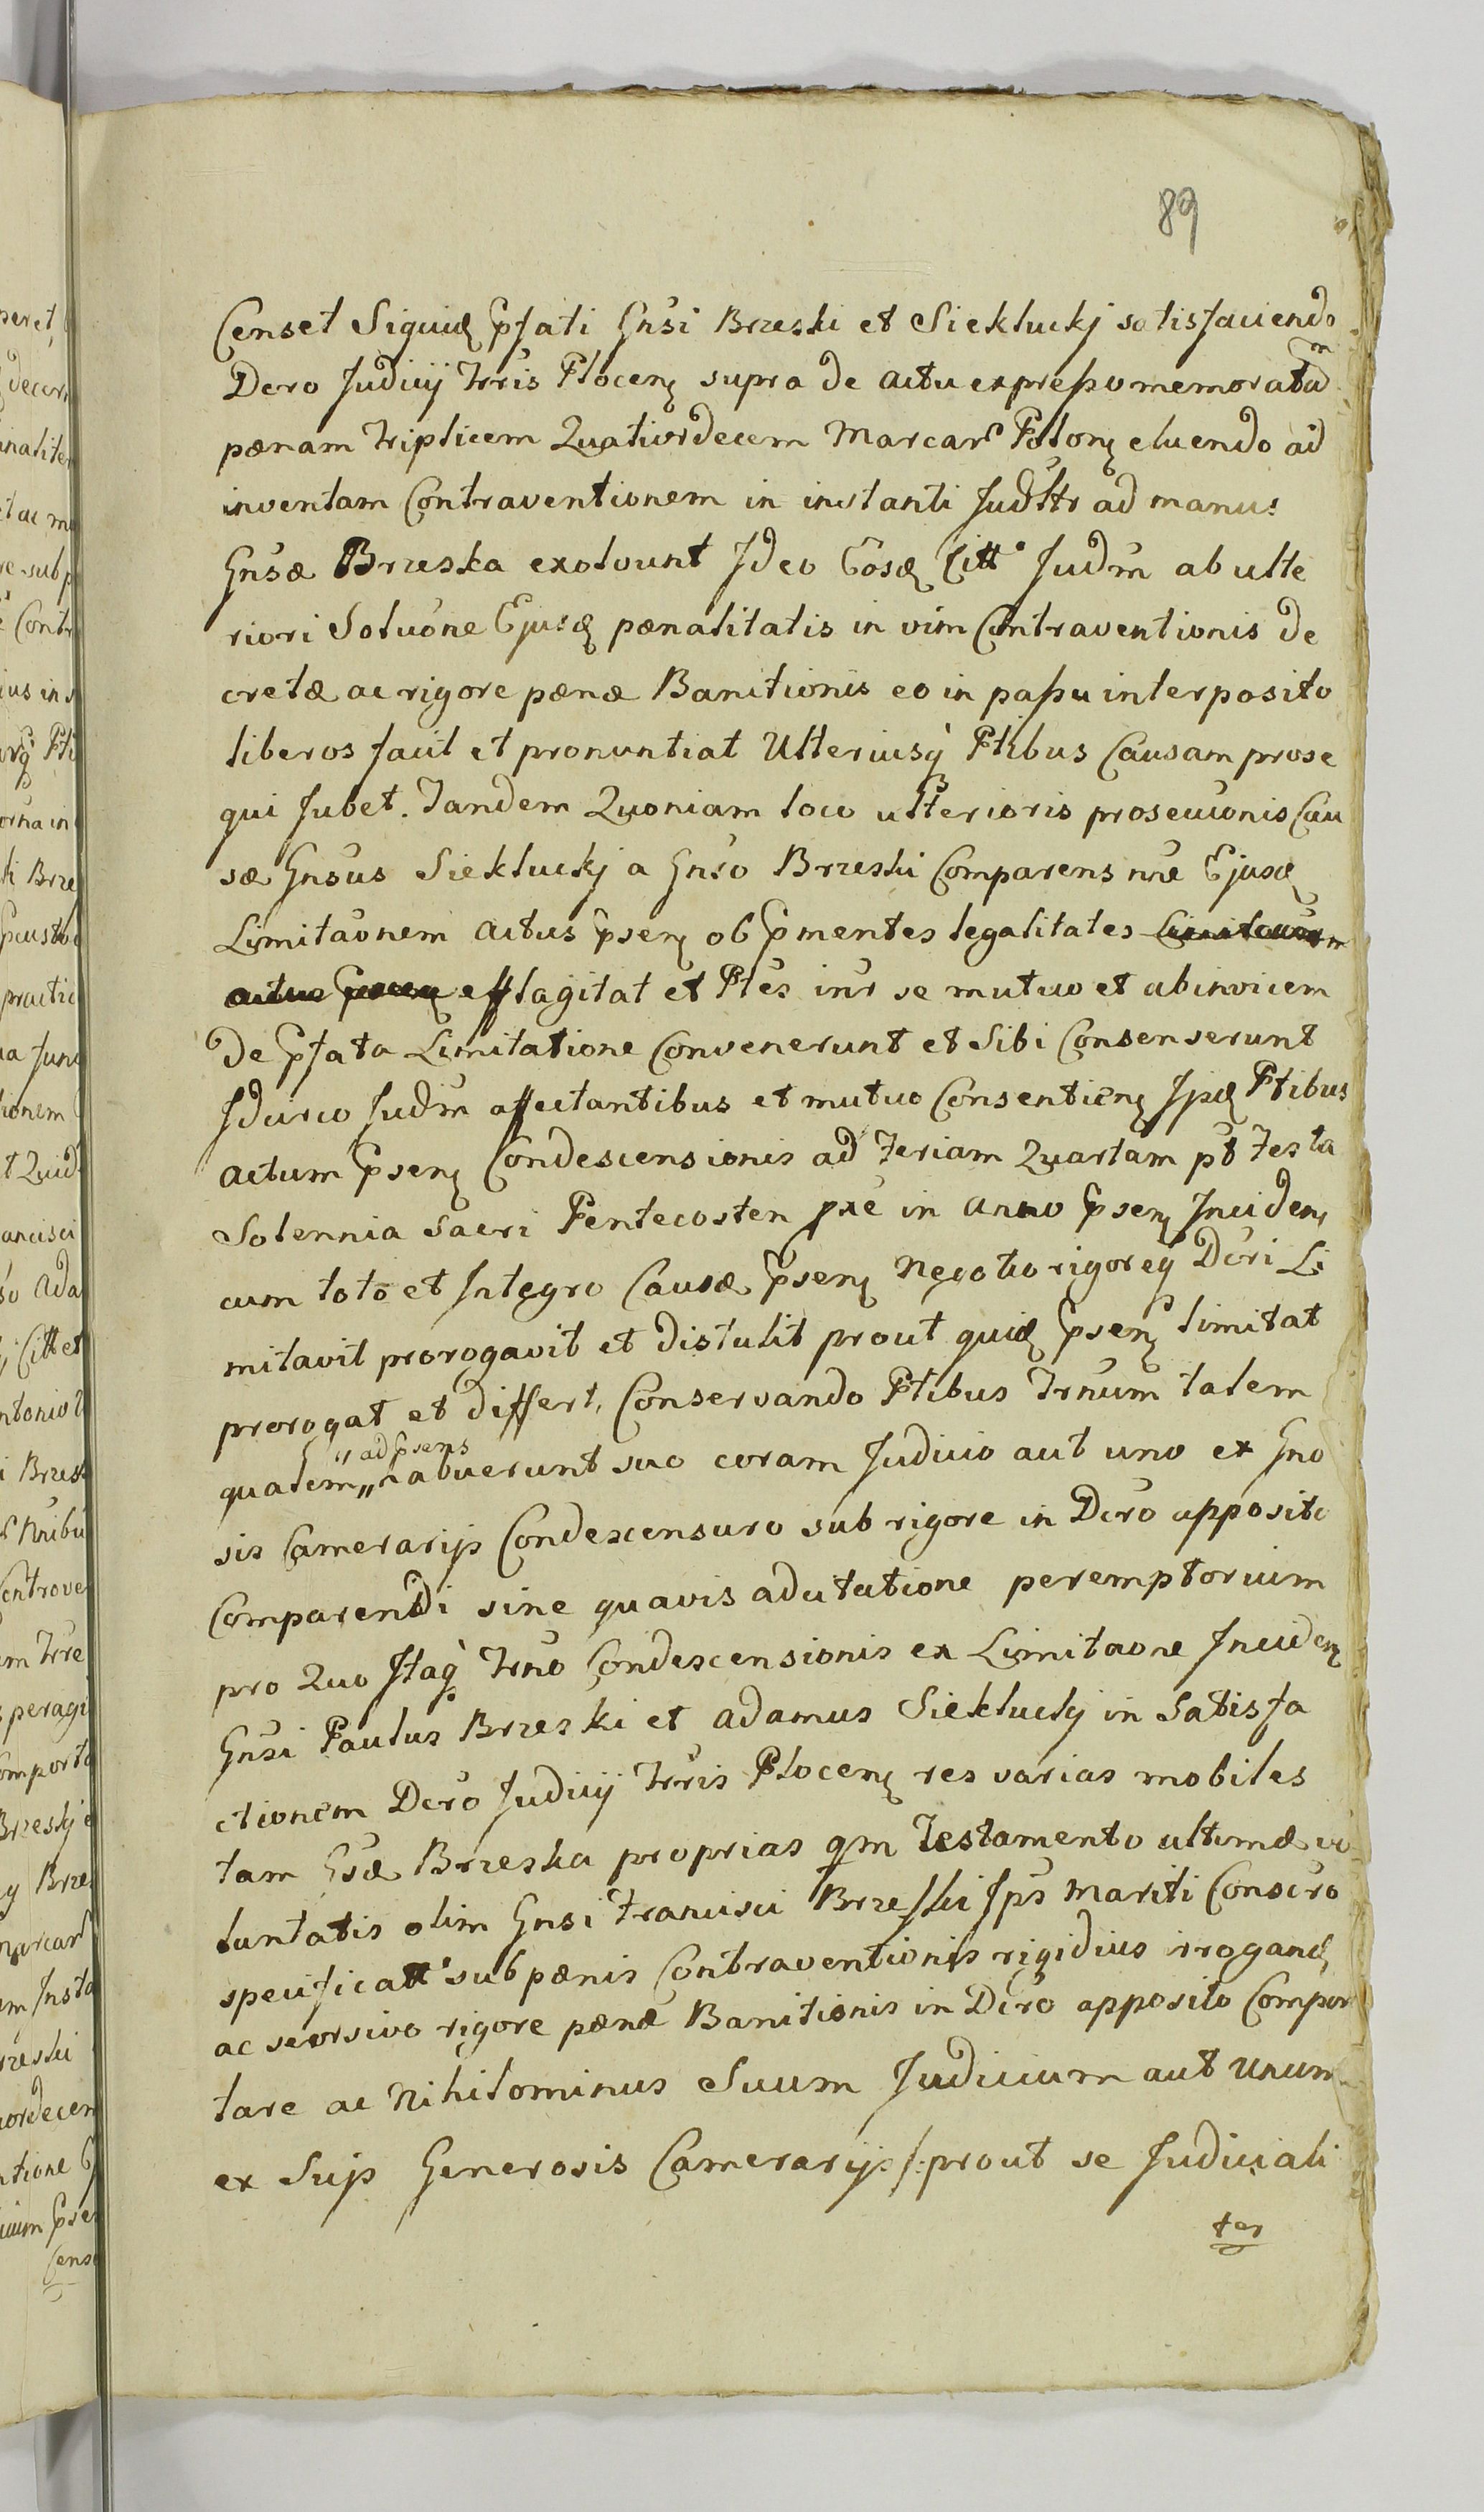 89
Censet Siquid Psati Gnsi Brzeski et Sieklucky satisfaciendo
Dcro Judicij Trris Plocen supra de actu expresso memoratam ad
pœnam triplicem Quatuordecem Marcar Polon eluendo ad
inventam Contraventionem in instanti Judttr ad manus
Gnsæ Brzeska exolvunt Ideo Eosd Citt Judm ab ulte
riori Soluone Ejusd pœnalitatis in vim Contraventionis de
cretæ ac rigore pœnæ Banitionis eo in passu interposito
liberos facit et pronuntiat Ulteriusq Ptibus Causam prose
qui Jubet. Tandem Quoniam loco ulterioris prosecuionis Cau
sæ Gnsus Sieklucky a Gnso Brzeski Comparens nne Ejusd
Limitaonem actus Psen ob Pmentes legalitates Limitaonem
actus Psen efflagitat et Ptes intr se mutuo et abinvicem
de Pfata Limitatione Convenerunt et Sibi Consenserunt
Idcirco Judm affectantibus et mutuo Consentien Ipsd Ptibus
actum Psen Condescensionis ad Feriam Quartam pt Festa
Solennia Sacri Pentecosten pxe in anno Psen Inciden
cum toto et Integro Causæ Psen Negotio rigoreq Dcri Li
mitavit prorogavit et distulit prout quid Psen limitat
prorogat et differt, Conservando Ptibus Trnum talem
qualem „ ad Psens „ habuerunt suo coram Judicio aut uno ex Gno
sis Camerarijs Condescensuro sub rigore in Dcro apposito
Comparendi sine quavis adcitatione peremptorium
pro Quo Itaq Trno Condescensionis ex Limitaone Inciden
Gnsi Paulus Brzeski et Adamus Sieklucky in Satisfa
ctionem Dcro Judicij Trris Plocen res varias mobiles
tam Gsæ Brzeska proprias qm Testamento ultimæ vo
luntatis olim Gnsi Francisci Brzeski Ips Mariti Conscro
specificatt sub pœnis Contraventionis rigidius irrogand
ac seorsivo rigore pœnæ Banitionis in Dcro apposito Compor
tare ac Nihilominus Suum Judicium aut Unum
ex Suis Generosis Camerarijs /: prout se Judiciali
ter